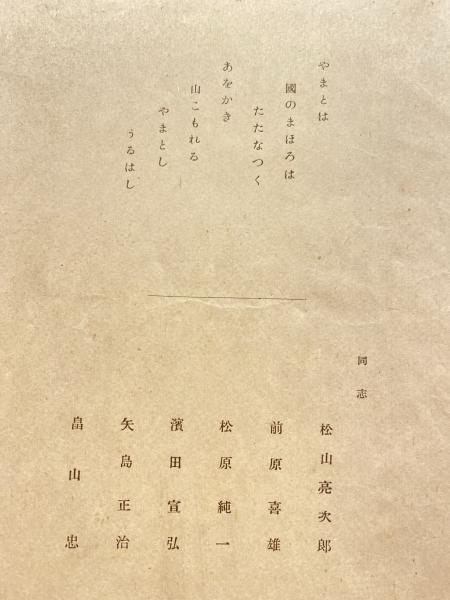 やまとは
國のまほろは
たたなつく
あをかき
山こもれる
やまとし
うるはし
同志
松山亮次郎
前原喜雄
松原純一
濱田宣弘
矢島正治
畠山忠